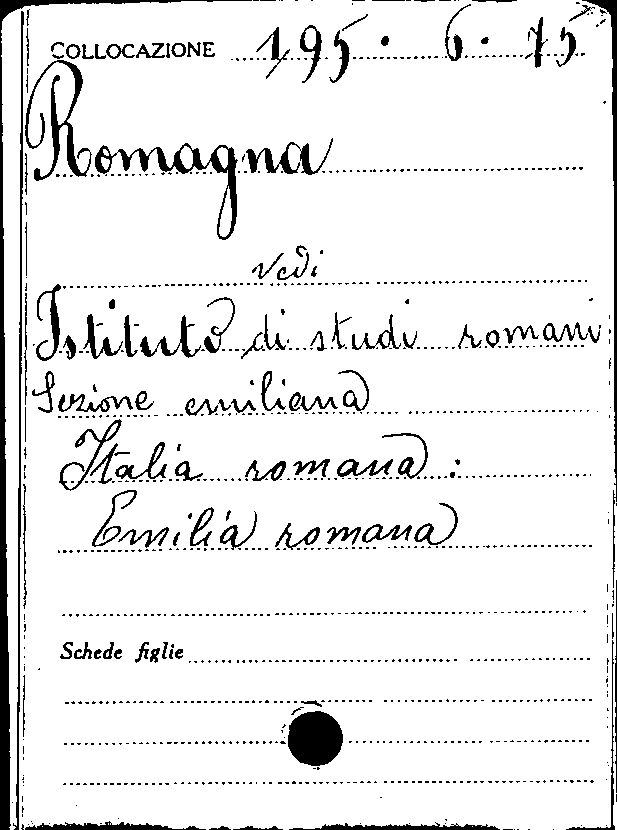 COLLOCAZIONE 195. 6. 75
Romagna
Vedi
Istituto di studi romani
Sezione emiliana
Italia romana :
Emilia romana
Schede figlie